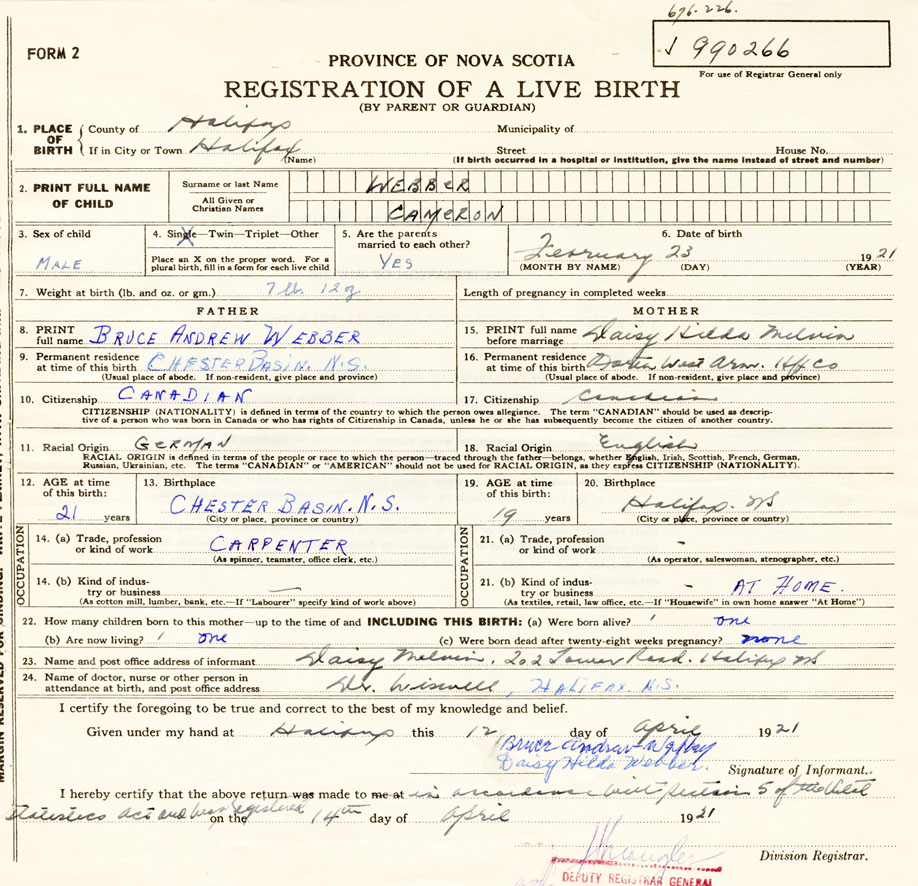 676-226.
FORM 2
J 990266
For use of Registrar General only
PROVINCE OF NOVA SCOTIA
REGISTRATION OF A LIVE BIRTH
(BY PARENT OR GUARDIAN)
1. PLACE OF BIRTH County of Halifax Municipality of
If in City or Town Halifax Street House No.
(Name) (If birth occurred in a hospital or institution, give the name instead of street and number)
2. PRINT FULL NAME OF CHILD
Surname or last Name WEBBER
All Given or Christian Names CAMERON
3. Sex of child MALE
4. Single—Twin—Triplet—Other X
Place an X on the proper word. For a
plural birth, fill in a form for each live child
5. Are the parents
married to each other? YES
6. Date of birth
February 23 1921
(MONTH BY NAME) (DAY) (YEAR)
7. Weight at birth (lb. and oz. or gm.) 7 lb. 12 oz Length of pregnancy in completed weeks
FATHER
8. PRINT full name BRUCE ANDREW WEBBER
9. Permanent residence
at time of this birth CHESTER BASIN. N.S.
(Usual place of abode. If non-resident, give place and province)
10. Citizenship CANADIAN
MOTHER
15. PRINT full name
before marriage Daisy Hilda Melvin
16. Permanent residence
at time of this birth West Arm. Hfx Co
(Usual place of abode. If non-resident, give place and province)
17. Citizenship Canadian
CITIZENSHIP (NATIONALITY) is defined in terms of the country to which the person owes allegiance. The term "CANADIAN" should be used as descrip-
tive of a person who was born in Canada or who has rights of Citizenship in Canada, unless he or she has subsequently become the citizen of another country.
11. Racial Origin GERMAN 18. Racial Origin English
RACIAL ORIGIN is defined in terms of the people or race to which the person—traced through the father—belongs, whether English, Irish, Scottish, French, German,
Russian, Ukrainian, etc. The terms "CANADIAN" or "AMERICAN" should not be used for RACIAL ORIGIN, as they express CITIZENSHIP (NATIONALITY).
12. AGE at time
of this birth:
21 years
13. Birthplace
CHESTER BASIN. N.S.
(City or place, province or country)
19. AGE at time
of this birth:
19 years
20. Birthplace
Halifax. NS
(City or place, province or country)
OCCUPATION
14. (a) Trade, profession
or kind of work CARPENTER
(As spinner, teamster, office clerk, etc.)
14. (b) Kind of indus-
try or business —
(As cotton mill, lumber, bank, etc.—If "Labourer" specify kind of work above)
OCCUPATION
21. (a) Trade, profession
or kind of work -
(As operator, saleswoman, stenographer, etc.)
21. (b) Kind of indus-
try or business - AT HOME.
(As textiles, retail, law office, etc.—If "Housewife" in own home answer "At Home")
22. How many children born to this mother—up to the time of and INCLUDING THIS BIRTH: (a) Were born alive? one
(b) Are now living? one (c) Were born dead after twenty-eight weeks pregnancy? none
23. Name and post office address of informant Daisy Melvin, 202 Tower Road. Halifax NS
24. Name of doctor, nurse or other person in
attendance at birth, and post office address Dr. Wiswell, HALIFAX. N.S.
I certify the foregoing to be true and correct to the best of my knowledge and belief.
Given under my hand at Halifax this 12 day of April 1921
Bruce Andrew Webber
Daisy Hilda Webber.
Signature of Informant.
I hereby certify that the above return was made to me at in accordance with Section 5 of the Vital
Statistics Act and was registered on the 14th day of April 1921
Division Registrar.
DEPUTY REGISTRAR GENERAL